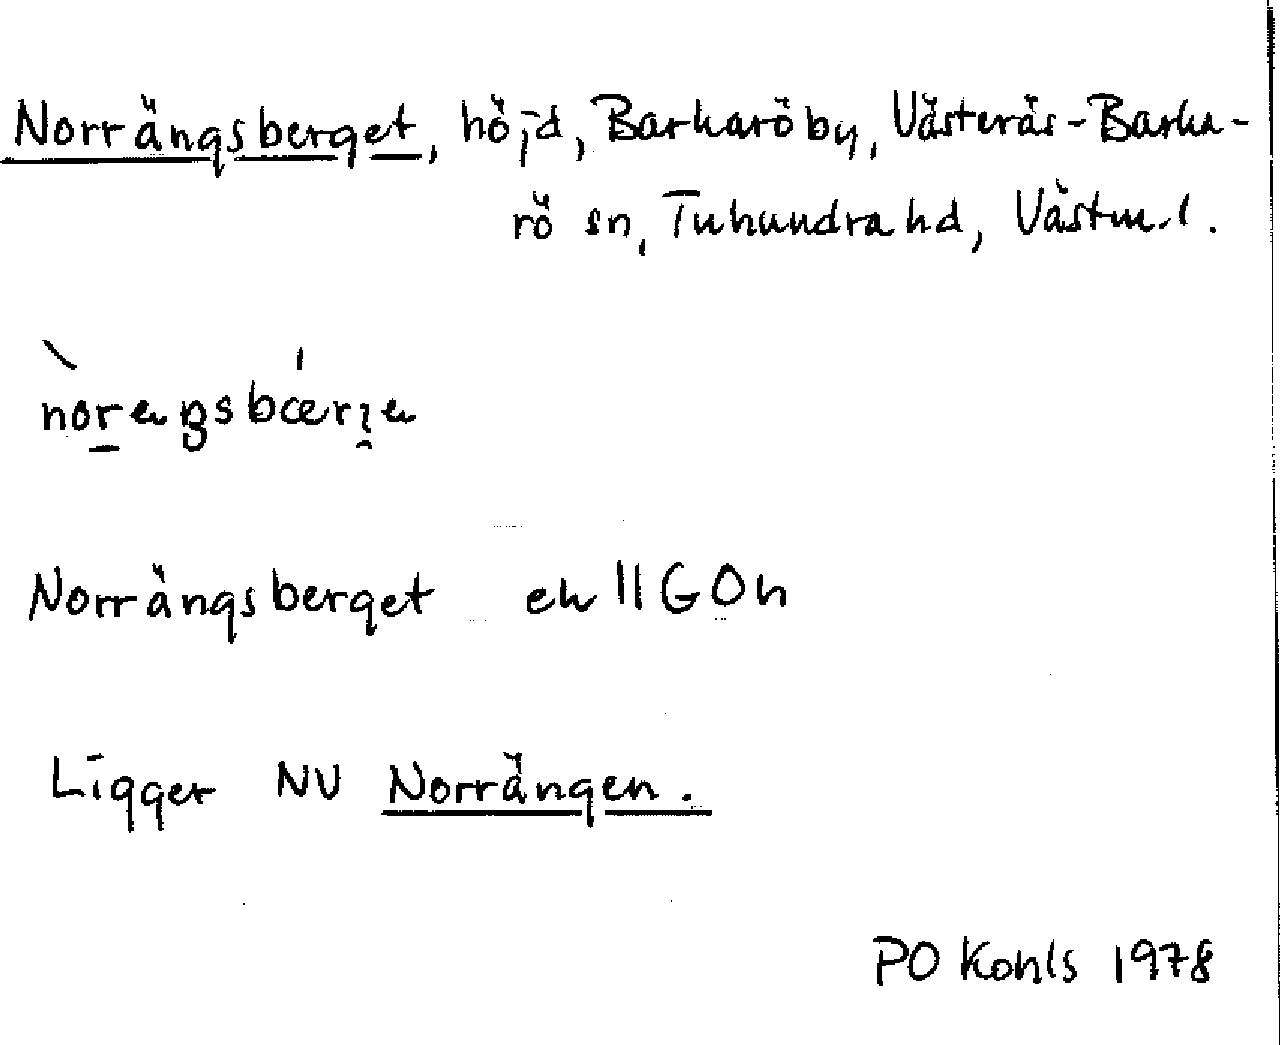 Norrängsberget, höjd, Barkaröby, Västerås-Barka-
rö sn, Tuhundra hd, Västm.l.
Norrängsberget ek 11G0h
Ligger NV Norrängen.
PO Kohls 1978